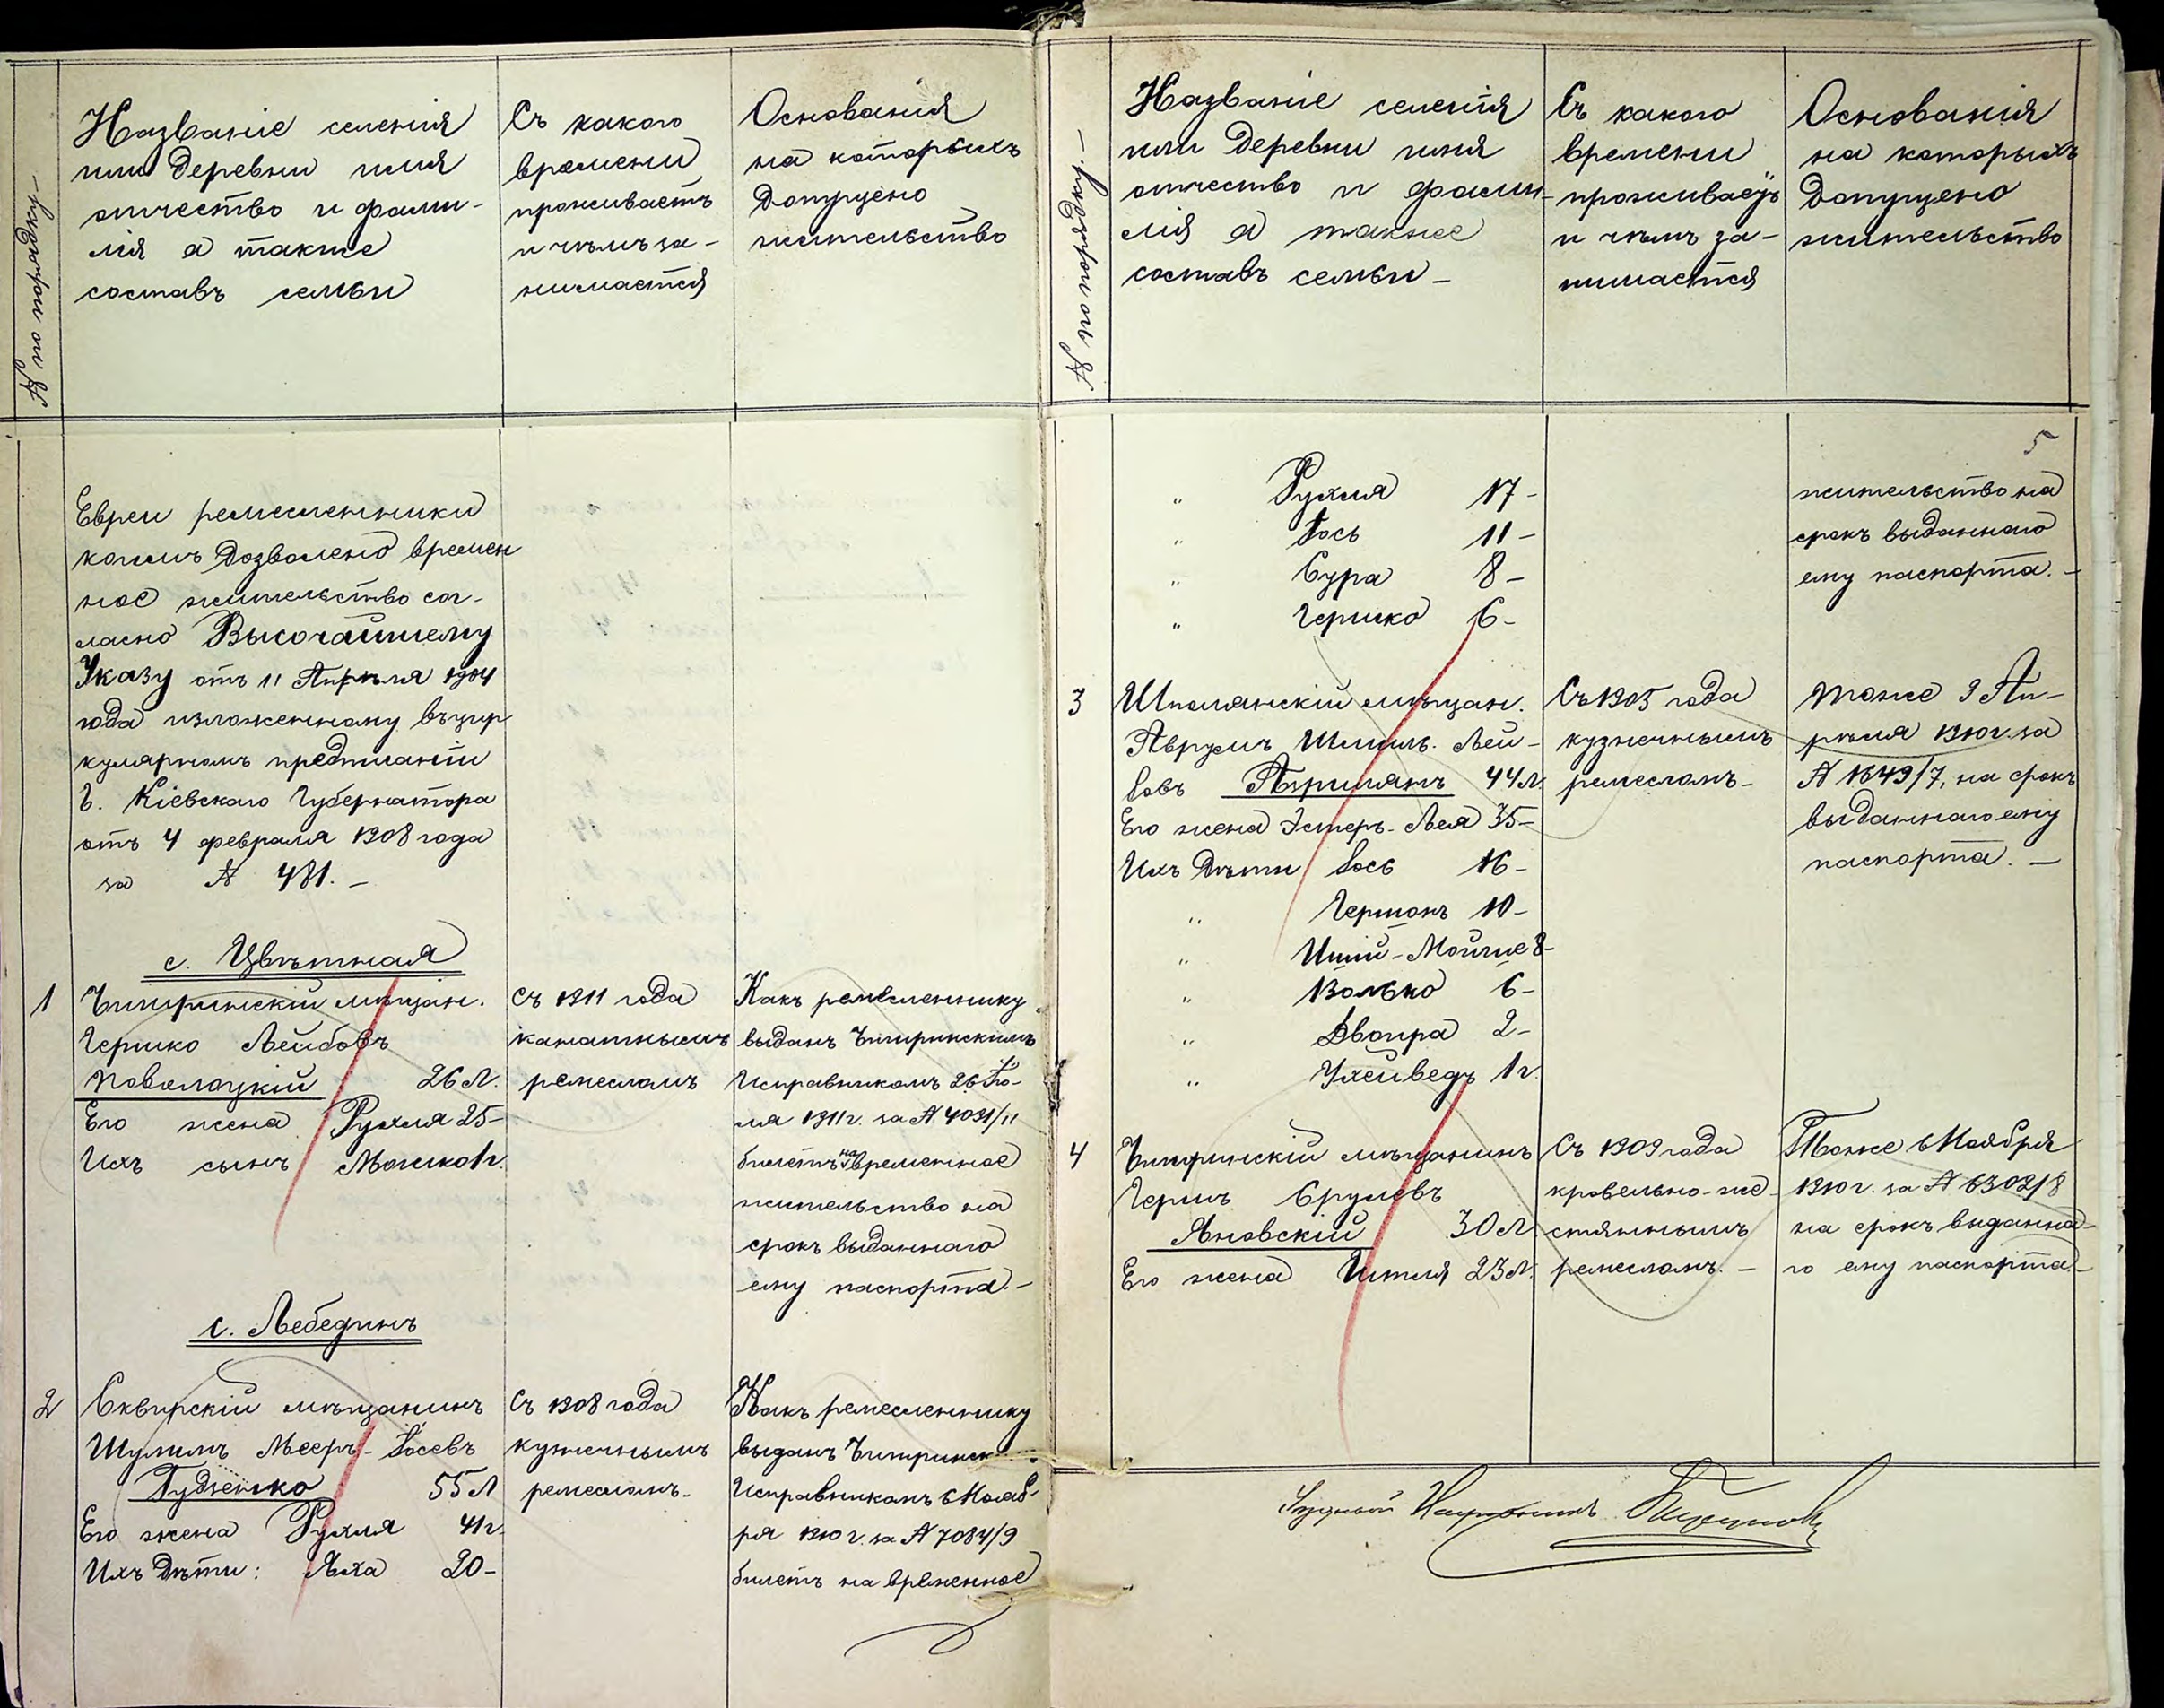 № по порядку.—
Названіе селенія
или деревни имя
отчество и фами-
лія а также
составъ семьи
Съ какого
времени
проживаетъ
и чѣмъ за-
нимается
Основанія
на которыхъ
допущено
жительство
Евреи ремесленники
коимъ дозволено времен
ное жительство сог-
ласно Высочайшему
Указу отъ 11 Апрѣля 1904
года изложенному въ цир
кулярномъ предписаніи
Г. Кіевскаго Губернатора
отъ 4 февраля 1908 года
за № 481.—
с. Цвѣтная
1
Чигиринскій мѣщан.
Гершко Лейбовъ
Поволоцкій 26 л.
Его жена Рухля 25-
Ихъ сынъ Мошко 1г.
съ 1911 года
канатнымъ
ремесломъ
Какъ ремесленнику
выданъ Чигиринскимъ
Исправникомъ 26 Ію-
ля 1911 г. за № 4031/11
билетъ на временное
жительство на
срокъ выданнаго
ему паспорта.—
с. Лебединъ
2
Сквирскій мѣщанинъ
Шулимъ Мееръ-Іосевъ
Гудзенко 55 л
Его жена Рухля 41 г.
Ихъ дѣти: Яха 20-
Съ 1908 года
кузнечнымъ
ремесломъ-
Какъ ремесленнику
выданъ Чигиринск
Исправникомъ 6 Нояб-
ря 1910 г. за № 7084/9
билетъ на временное
№ по порядку.—
Названіе селенія
или деревни имя
отчество и фами-
лія а также
составъ семьи—
Съ какого
времени
проживаетъ
и чѣмъ за-
нимается
Основанія
на которыхъ
допущено
жительство
5
" Рухля 17-
" Іось 11-
" Сура 8-
" Гершко 6-
жительство на
срокъ выданнаго
ему паспорта.—
3
Шполянскій мѣщан.
Аврумъ Шмиль-Лей-
бовъ 44 л.
Его жена Эстеръ-Лея 35-
Ихъ дѣти Іось 16-
" Гершонъ 10-
" Мойше 8-
" Волько 6-
" Двойра 2-
" 1 г.
Съ 1905 года
кузнечнымъ
ремесломъ-
тоже 9 Ап-
рѣля 1910 г. за
№ 1649/7, на срокъ
выданнаго ему
паспорта.—
4
Чигиринскій мѣщанинъ
Гершъ Срулевъ
Яновскій 30 л.
Его жена 23 л.
Съ 1909 года
кровельно-же-
стяннымъ
ремесломъ.—
Тоже 6 Ноября
1910 г. за № 6302/8
на срокъ выданна-
го ему паспорта.—
Уѣздный Исправникъ